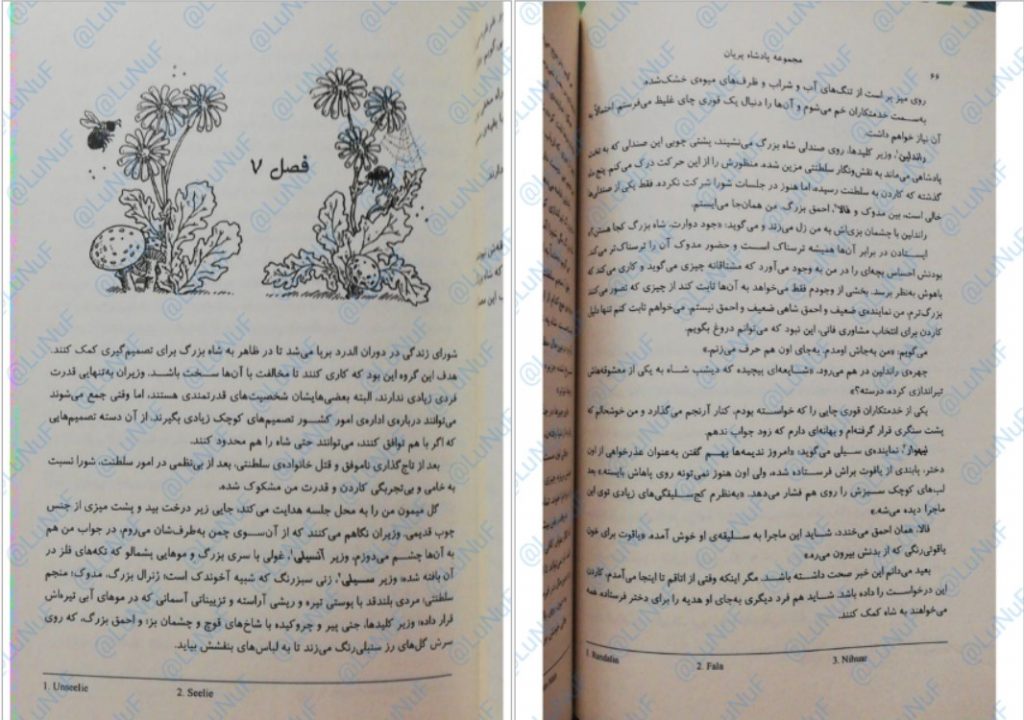 فصل ۷
شورای زندگی در دوران الدرد برپا می‌شد تا در ظاهر به شاه بزرگ برای تصمیم‌گیری کمک کنند.
هدف این گروه این بود که کاری کنند تا مخالفت با آن‌ها سخت باشد. وزیران به‌تنهایی قدرت
فردی زیادی ندارند، البته بعضی‌هایشان شخصیت‌های قدرتمندی هستند، اما وقتی جمع می‌شوند
می‌توانند درباره‌ی اداره‌ی امور کشور تصمیم‌های کوچک زیادی بگیرند. از آن دسته تصمیم‌هایی
که اگر با هم توافق کنند، می‌توانند حتی شاه را هم محدود کنند.
بعد از تاج‌گذاری ناموفق و قتل خانواده‌ی سلطنتی، بعد از بی‌نظمی در امور سلطنت، شورا نسبت
به خامی و بی‌تجربگی کاردن و قدرت من مشکوک شده.
گل میمون من را به محل جلسه هدایت می‌کند، جایی زیر درخت بید و پشت میزی از جنس
چوب قدیمی. وزیران نگاهم می‌کنند که از آن‌سوی چمن به‌طرف‌شان می‌روم، در جواب من هم
به آن‌ها چشم می‌دوزم. وزیر آنسیلی¹، غولی با سری بزرگ و موهایی پشمالو که تکه‌های فلز در
آن بافته شده؛ وزیر سیلی²، زنی سبزرنگ که شبیه آخوندک است؛ ژنرال بزرگ، مدوک؛ منجم
سلطنتی؛ مردی بلندقد با پوستی تیره و ریشی آراسته و تزییناتی آسمانی که در موهای آبی تیره‌اش
قرار داده؛ وزیر کلیدها، جنی پیر و چروکیده با شاخ‌های قوچ و چشمان بز؛ و احمق بزرگ، که روی
سرش گل‌های رز سنبلی‌رنگ می‌زند تا به لباس‌های بنفشش بیاید.
1. Unseelie 2. Seelie
مجموعه پادشاه پریان
۶۶
روی میز پر است از تنگ‌های آب و شراب و ظرف‌های میوه‌ی خشک‌شده.
به‌سمت خدمتکاران خم می‌شوم و آن‌ها را دنبال یک قوری چای غلیظ می‌فرستم. احتمالاً به
آن نیاز خواهم داشت.
راندلین¹، وزیر کلیدها، روی صندلی شاه بزرگ می‌نشیند، پشتی چوبی این صندلی که به تخت
پادشاهی می‌ماند به نقش‌ونگار سلطنتی مزین شده. منظورش را از این حرکت درک می‌کنم. پنج ماه
گذشته که کاردن به سلطنت رسیده، اما هنوز در جلسات شورا شرکت نکرده. فقط یکی از صندلی‌ها
خالی است، بین مدوک و فالا²، احمق بزرگ. من همان‌جا می‌ایستم.
راندلین با چشمان بزی‌اش به من زل می‌زند و می‌گوید: «جود دوارت، شاه بزرگ کجا هستن؟»
ایستادن در برابر آن‌ها همیشه ترسناک است و حضور مدوک آن را ترسناک‌تر می‌کند.
بودنش احساس بچه‌ای را در من به وجود می‌آورد که مشتاقانه چیزی می‌گوید و کاری می‌کند که
باهوش به‌نظر برسد. بخشی از وجودم فقط می‌خواهد به آن‌ها ثابت کند از چیزی که تصور می‌کنند
بزرگ‌ترم، من نماینده‌ی ضعیف و احمق شاهی ضعیف و احمق نیستم. می‌خواهم ثابت کنم تنها دلیل
کاردن برای انتخاب مشاوری فانی، این نبود که می‌توانم دروغ بگویم.
می‌گویم: «من به‌جاش اومدم. به‌جای اون هم حرف می‌زنم.»
چهره‌ی راندلین در هم می‌رود. «شایعه‌ای پیچیده که دیشب شاه به یکی از معشوقه‌هاش
تیراندازی کرده، درسته؟»
یکی از خدمتکاران قوری چایی را که خواسته بودم، کنار آرنجم می‌گذارد و من خوشحالم که
پشت سنگری قرار گرفته‌ام و بهانه‌ای دارم که زود جواب ندهم.
نیهوار³، نماینده‌ی سیلی می‌گوید: «امروز ندیمه‌ها بهم گفتن به‌عنوان عذرخواهی از اون
دختر، پابندی از یاقوت براش فرستاده شده، ولی اون هنوز نمی‌تونه روی پاهاش بایسته» بعد
لب‌های کوچک سبزش را روی هم فشار می‌دهد. «به‌نظرم کج‌سلیقگی‌های زیادی توی این
ماجرا دیده می‌شه.»
فالا، همان احمق می‌خندد، شاید این ماجرا به سلیقه‌ی او خوش آمده. «یاقوت برای خون
یاقوتی‌رنگی که از بدنش بیرون می‌ره.»
بعید می‌دانم این خبر صحت داشته باشد. مگر اینکه وقتی از اتاقم تا اینجا می‌آمدم، کاردن
این درخواست را داده باشد. شاید هم فرد دیگری به‌جای او هدیه را برای دختر فرستاده همه
می‌خواهند به شاه کمک کنند.
1. Randalin 2. Fala 3. Nihuar
@LuNuF